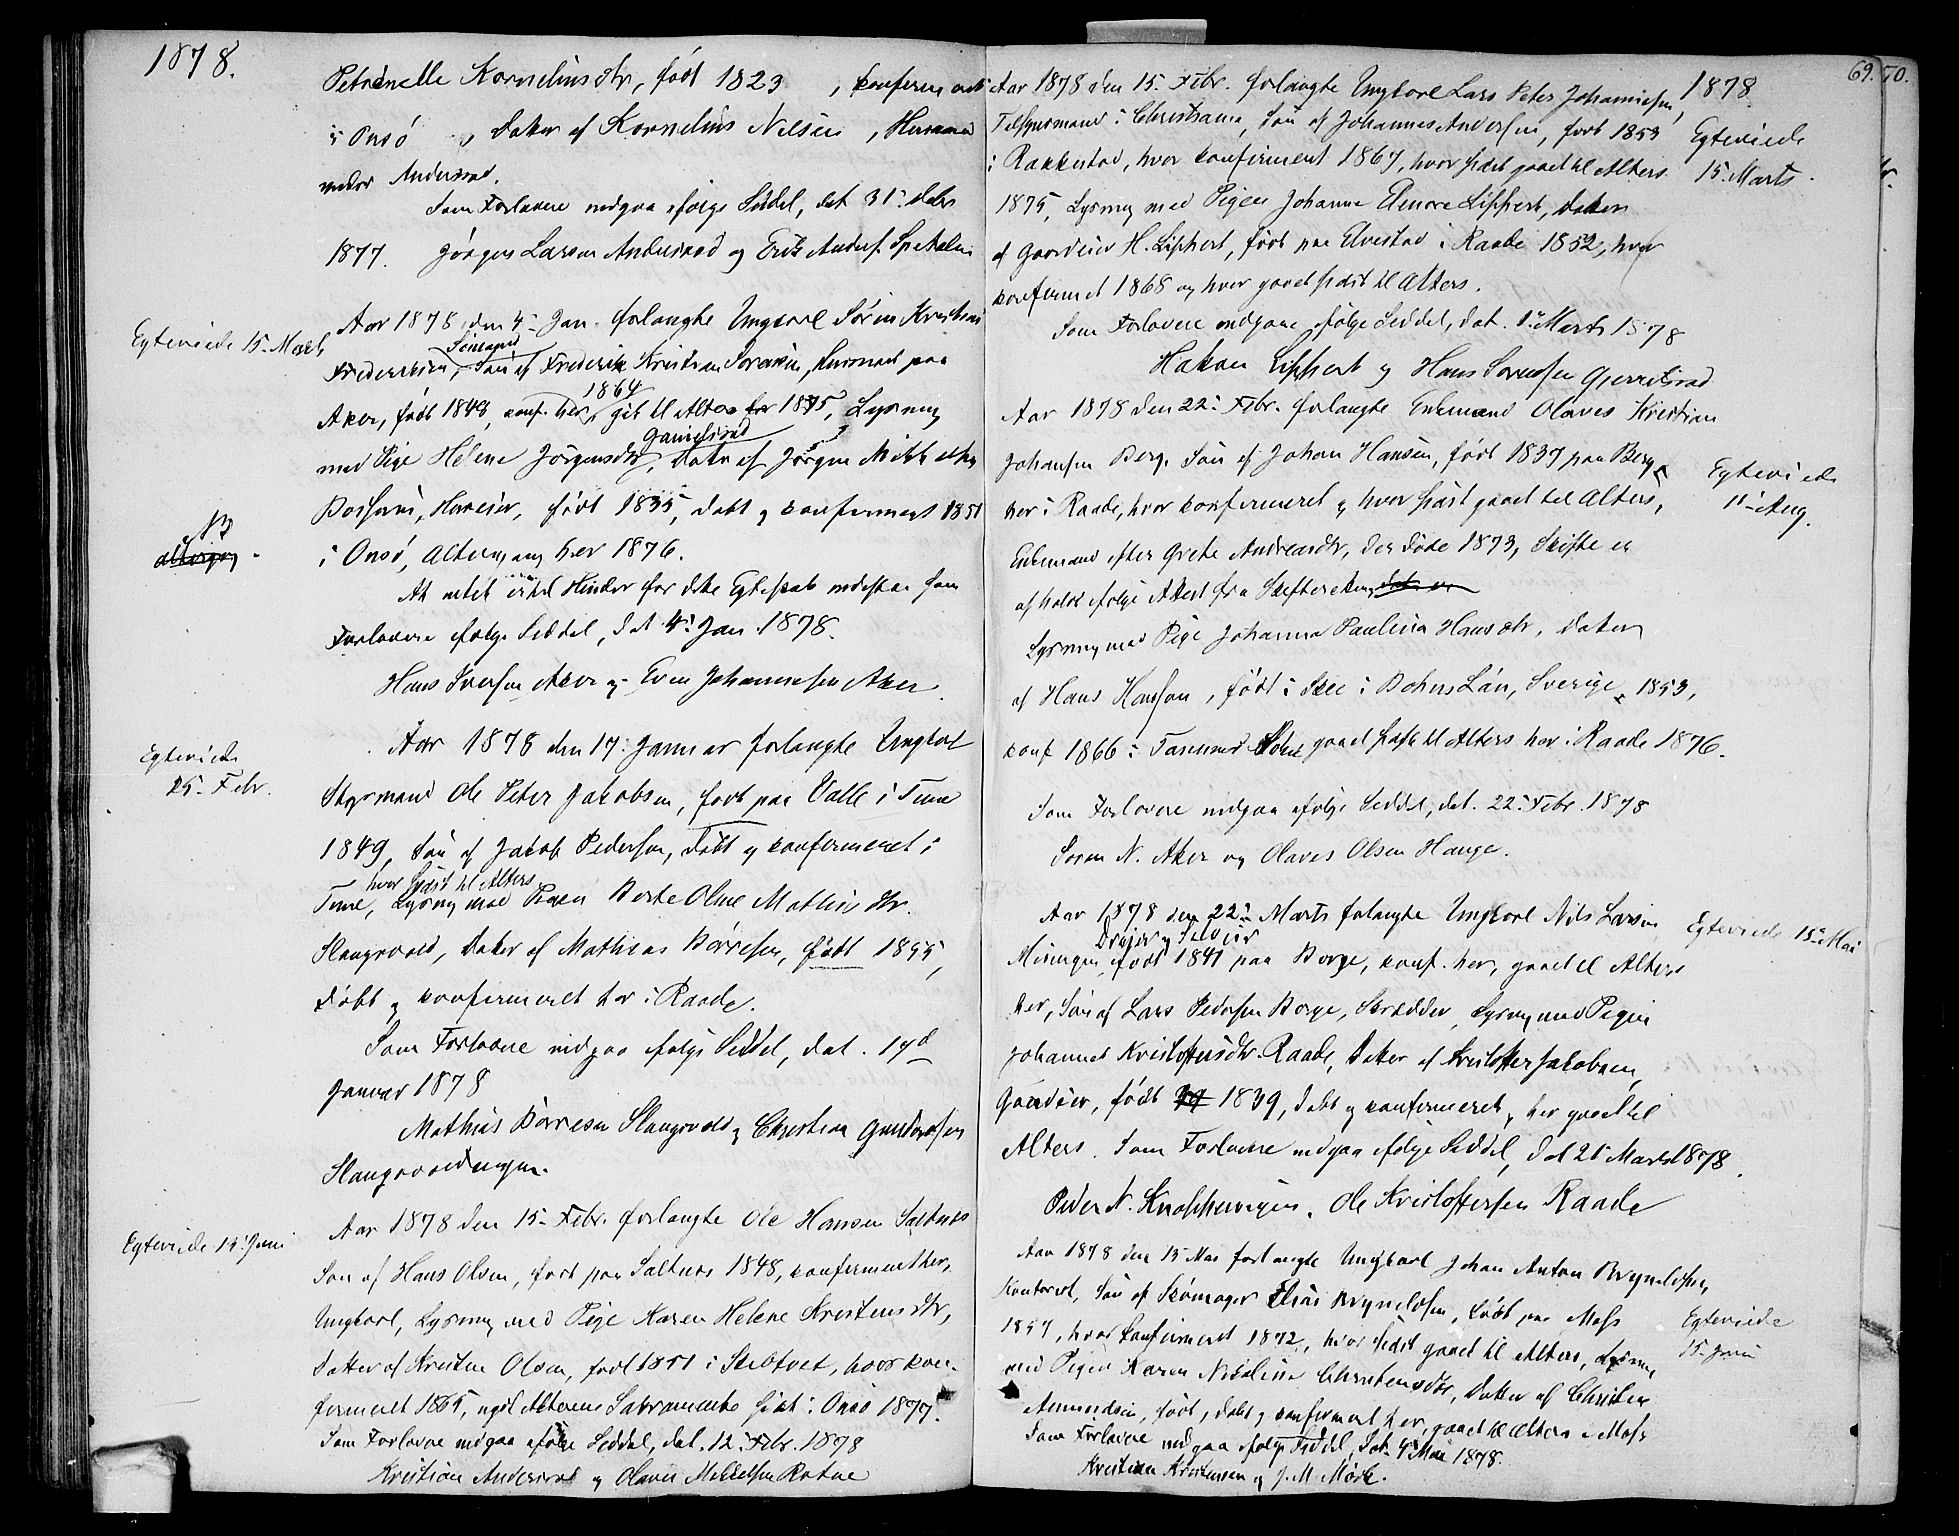 1878.
Petronelle Kornelius dtr, født 1823 , konfirmeret
i Onsö , Datter af Kornelius Nilsen , Husmand
under Andersrød.
Som Forlovere indgaa ifølge Seddel, dat 31'
1877. Jörgen Larsen Andersrød og Andersf.
Egteviede 15 Marts
Aar 1878 den 4 Jan. forlangte Ungkarl Sören Kristian
Frederiksen, Sön af Frederik Kristian Sörensen, Husmand paa
1864
Aker, født 1848, konf. her, git til Alters 1875, Lysning
med Pige Helene Jörgensdtr, Datter af Jörgen
Huseier, født 1835, døbt og konfirmeret 1851
NB
altergang.
i Onsö, Altergang her 1876.
At intet er til Hinder for dette Egteskab indestaa som
Forlovere ifølge Seddel, dat 4' Jan. 1878.
Hans Iversen Aker og Even Johannesen Aker.
Aar 1878 den 17. Januar forlangte Ungkarl
Egteviede
25 Febr.
Styrmand Ole Peter Jakobsen, født paa Valle i Tune
1849, Sön af Jakob Pedersen, døbt og konfirmeret i
hvor sidst til Alters
Tune, Lysning med Pigen Berte Oline Mathisdtr.
Slangsvold, Datter af Mathias Börresen, født 1855,
døbt og konfirmeret her i Raade.
Som Forlovere indgaa ifølge Seddel, dat. 17d
Januar 1878
Mathias Börresen Slangsvold og Christian Gundersen
Slangsvoldengen.
Aar 1878 den 15 Febr. forlangte Ole Hansen Saltnes
Egteviede 14 Juni
Sön af Hans Olsen, født paa Saltnes 1848, konfirmeret her,
Ungkarl, Lysning med Pige Karen Helene Kristensdtr,
Datter af Kristen Olsen, født 1851 i Skibtvet, hvor kon-
firmeret 1865, nydt Alterens Sakramente sidst i Onsö 1877.
Som Forlovere indgaa ifølge Seddel, dat. 12 Febr. 1878
Kristian Andersrød og Olaves Mikkelsen
69. 70.
1878
Aar 1878 den 15. Febr. forlangte Ungkarl Lars Peter Johannesen,
i Christiania, Sön af Johannes Andersen, født 1853
Egteviede
15 Marts
i Rakkestad, hvor konfirmeret 1867, hvor sidst gaaet til Alters
1875, Lysning med Pigen Johanne Elenore Lippert, Datter
af Gaardeier H. Lippert, født paa Elvestad i Raade 1852, hvor
konfirmeret 1868 og hvor gaaet sidst til Alters.
Som Forlovere indgaa ifølge Seddel, dat. 1' Marts 1878
Hakon Lippert og Hans Sörensen
Aar 1878 den 22' Febr. forlangte Enkemand Olaves Kristian
Johansen Berg, Sön af Johan Hansen, født 1837 paa Berg
Egteviede
11 Aug.
her i Raade, hvor konfirmeret og hvor sidst gaaet til Alters,
Enkemand efter Grete Andreasdtr, der døde 1873, Skifte er
afholdt ifølge Attest fra Skifteretten
Lysning med Pige Johanna Paulina Hansdtr, Datter
af Hans Hanson, født i Skee i Bohus Län, Sverige, 1853,
konf 1866 i Tanum gaaet sidst til Alters her i Raade 1876.
Som Forlovere indgaa ifølge Seddel, dat. 22' Febr. 1878
Soren N. Aker og Olaves Olsen Hauge.
Aar 1878 den 22' Marts forlangte Ungkarl Nils Larsen
Egteviede 15 Mai
Misingen født 1841 paa Borge, konf. her, gaaet til Alters
her, Sön af Lars Pedersen Borge, Skrædder, Lysning med Pigen
Johanne Kristoffersdtr. Raade, Datter af Kristoffer Jakobsen,
Gaardeier, født 1839, døbt og konfirmeret, her gaaet til
Alters. Som Forlovere indgaa ifølge Seddel, dat 21 Marts 1878.
Peder N. . Ole Kristoffersen Raade
Aar 1878 den 13 Mai forlangte Ungkarl Johan Anton Bryndelsen,
Kontorist, Sön af Skomager Elias Bryndelsen, født paa Moss
Egteviede
15 Juni
1857, hvor konfirmeret 1872, hvor sidst gaaet til Alters, Lysning
med Pigen Karen Nikoline Christensdtr, Datter af Christen
Amundsen, født, døbt og konfirmeret her, gaaet til Alters i Moss
Som Forlovere indgaa ifølge Seddel, dat 4 Mai 1878.
Kristian Kristensen og J. M. Mörk.